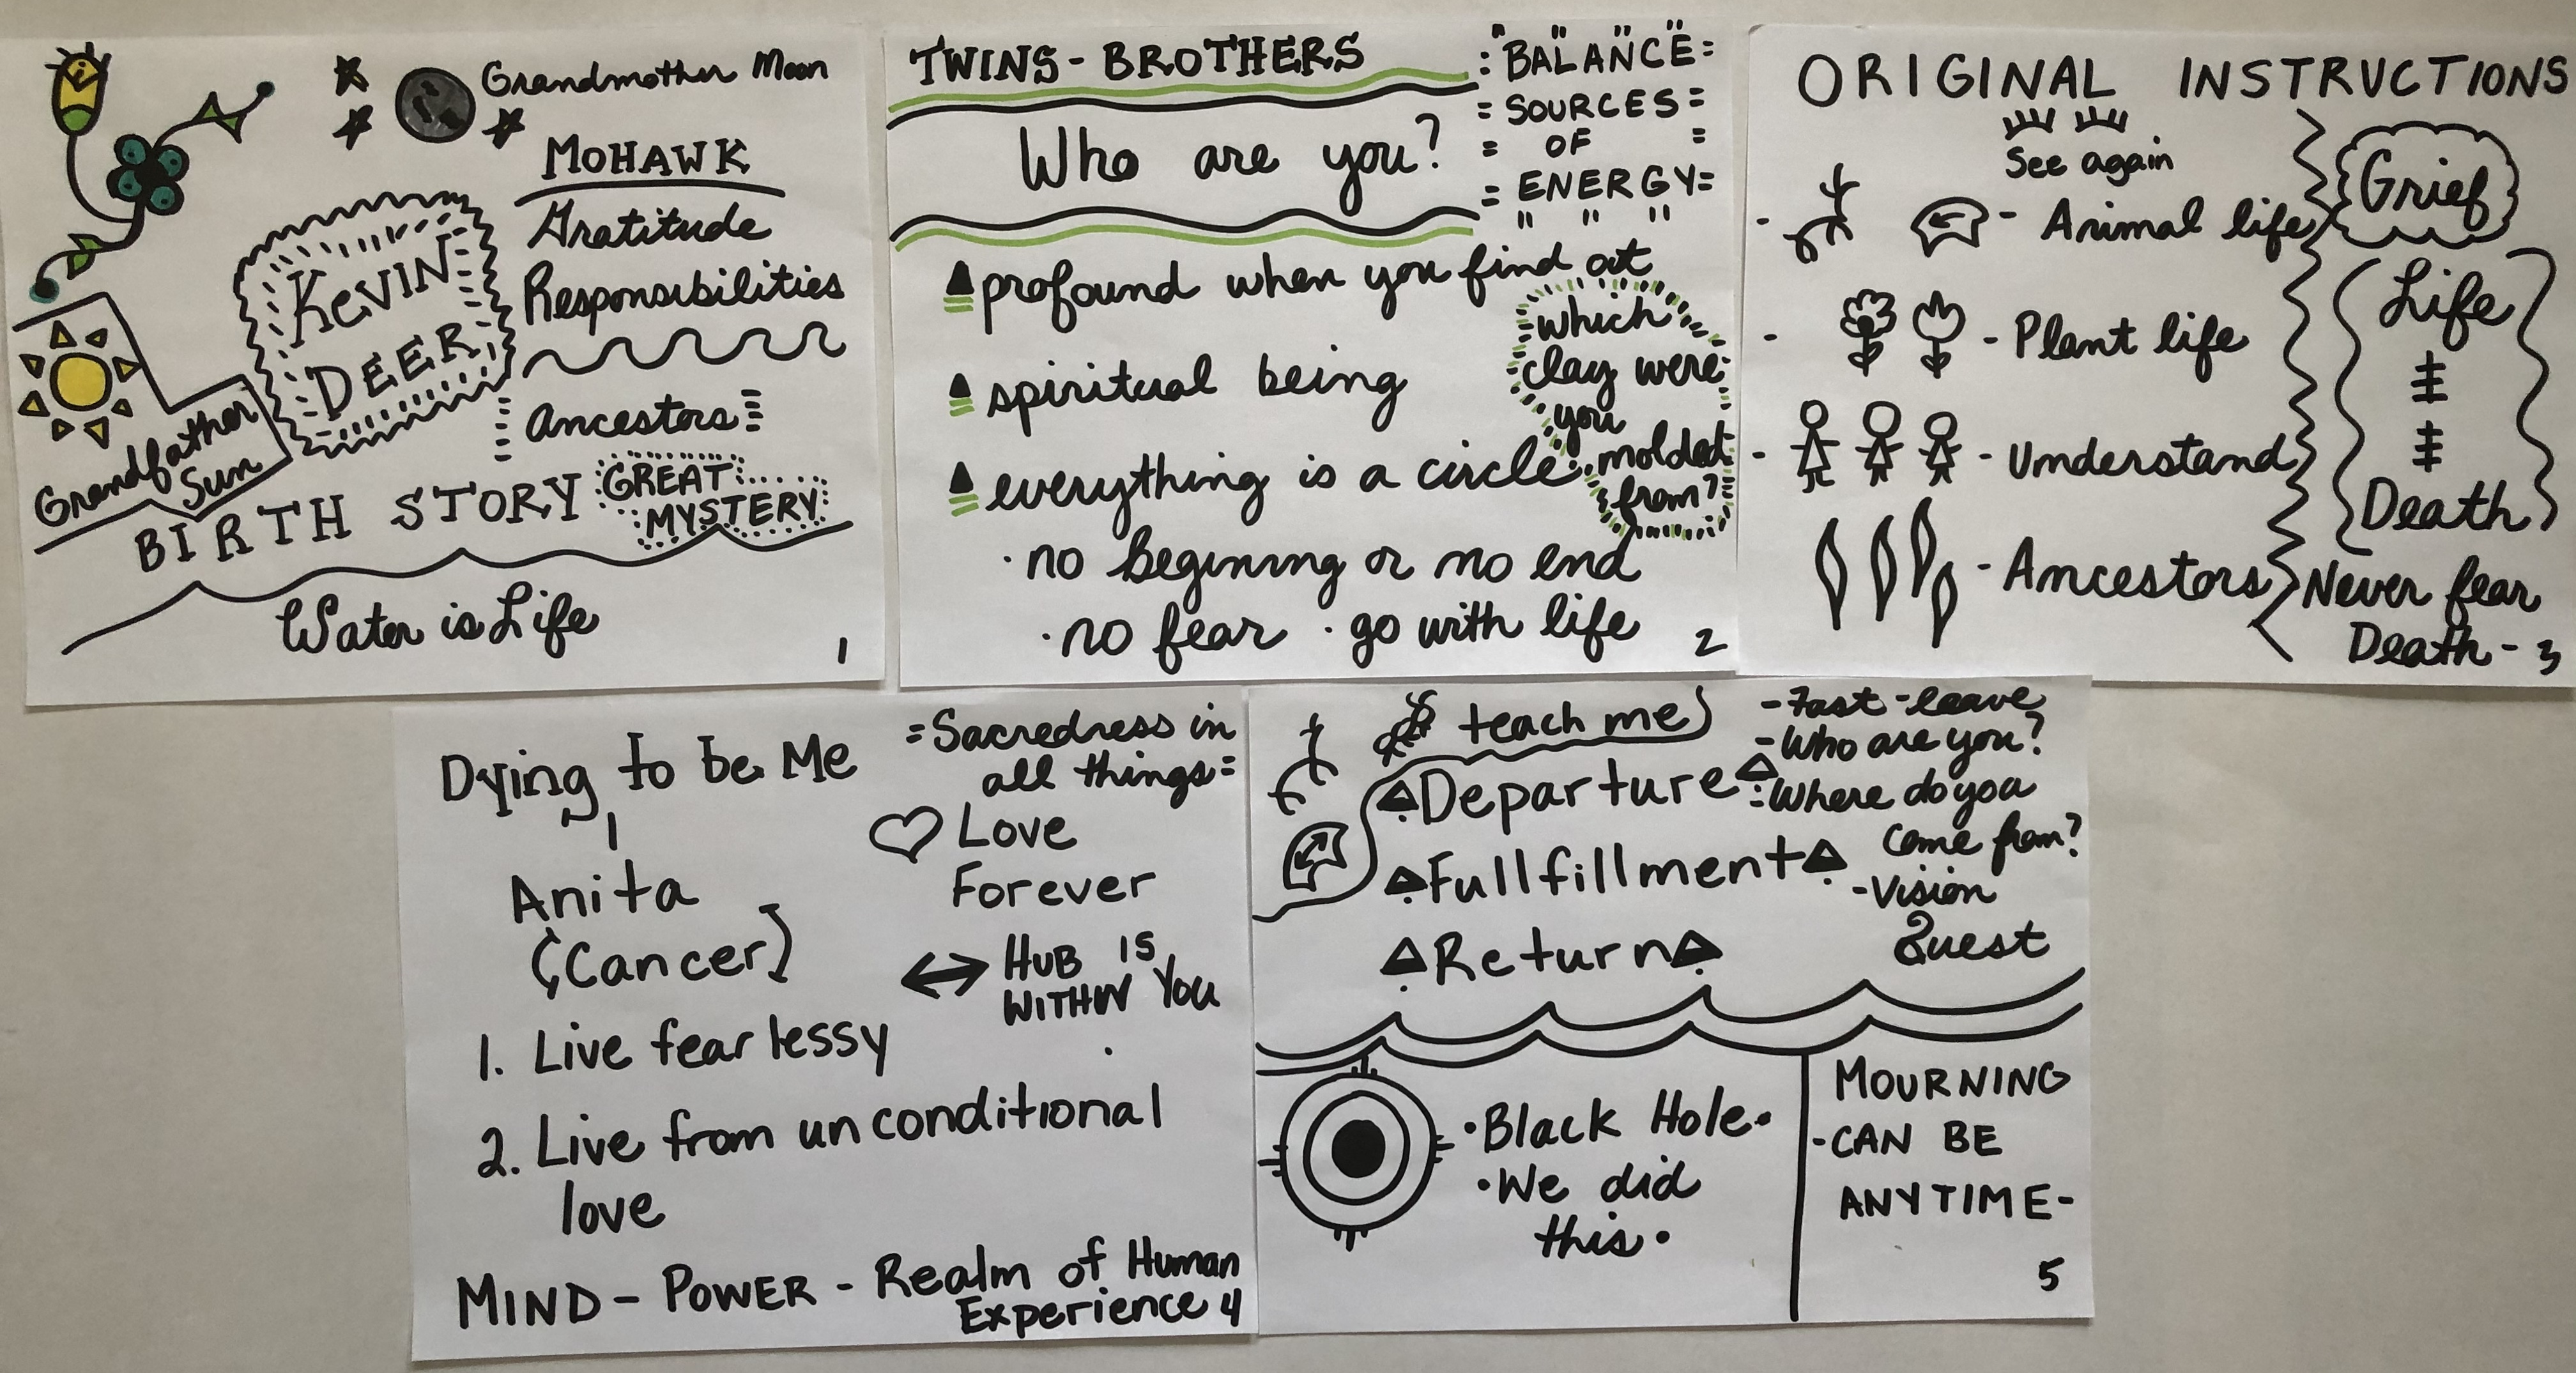 Grandmother Moon
MOHAWK
Gratitude
Responsibilities
KEVIN
DEER
Ancestors
Grandfather
Sun
BIRTH STORY
GREAT
MYSTERY
Water is Life
1
TWINS - BROTHERS
Who are you?
"BALANCE"
SOURCES
OF
ENERGY
profound when you find out
which
clay were
you
molded
from?
spiritual being
everything is a circle
· no begining or no end
· no fear · go with life
2
ORIGINAL INSTRUCTIONS
See again
- Animal life
- Plant life
- Understand
- Ancestors
Grief
Life
Death
Never fear
Death - 3
Dying to be Me
Anita
(Cancer)
=Sacredness in
all things=
Love
Forever
HUB IS
WITHIN YOU
1. Live fearlessy
2. Live from unconditional
love
MIND - POWER - Realm of Human
Experience 4
teach me
Departure
Fullfillment
Return
- Fast - leave
- Who are you?
- Where do you
come from?
- Vision
Quest
· Black Hole ·
· We did
this ·
MOURNING
- CAN BE
ANYTIME -
5